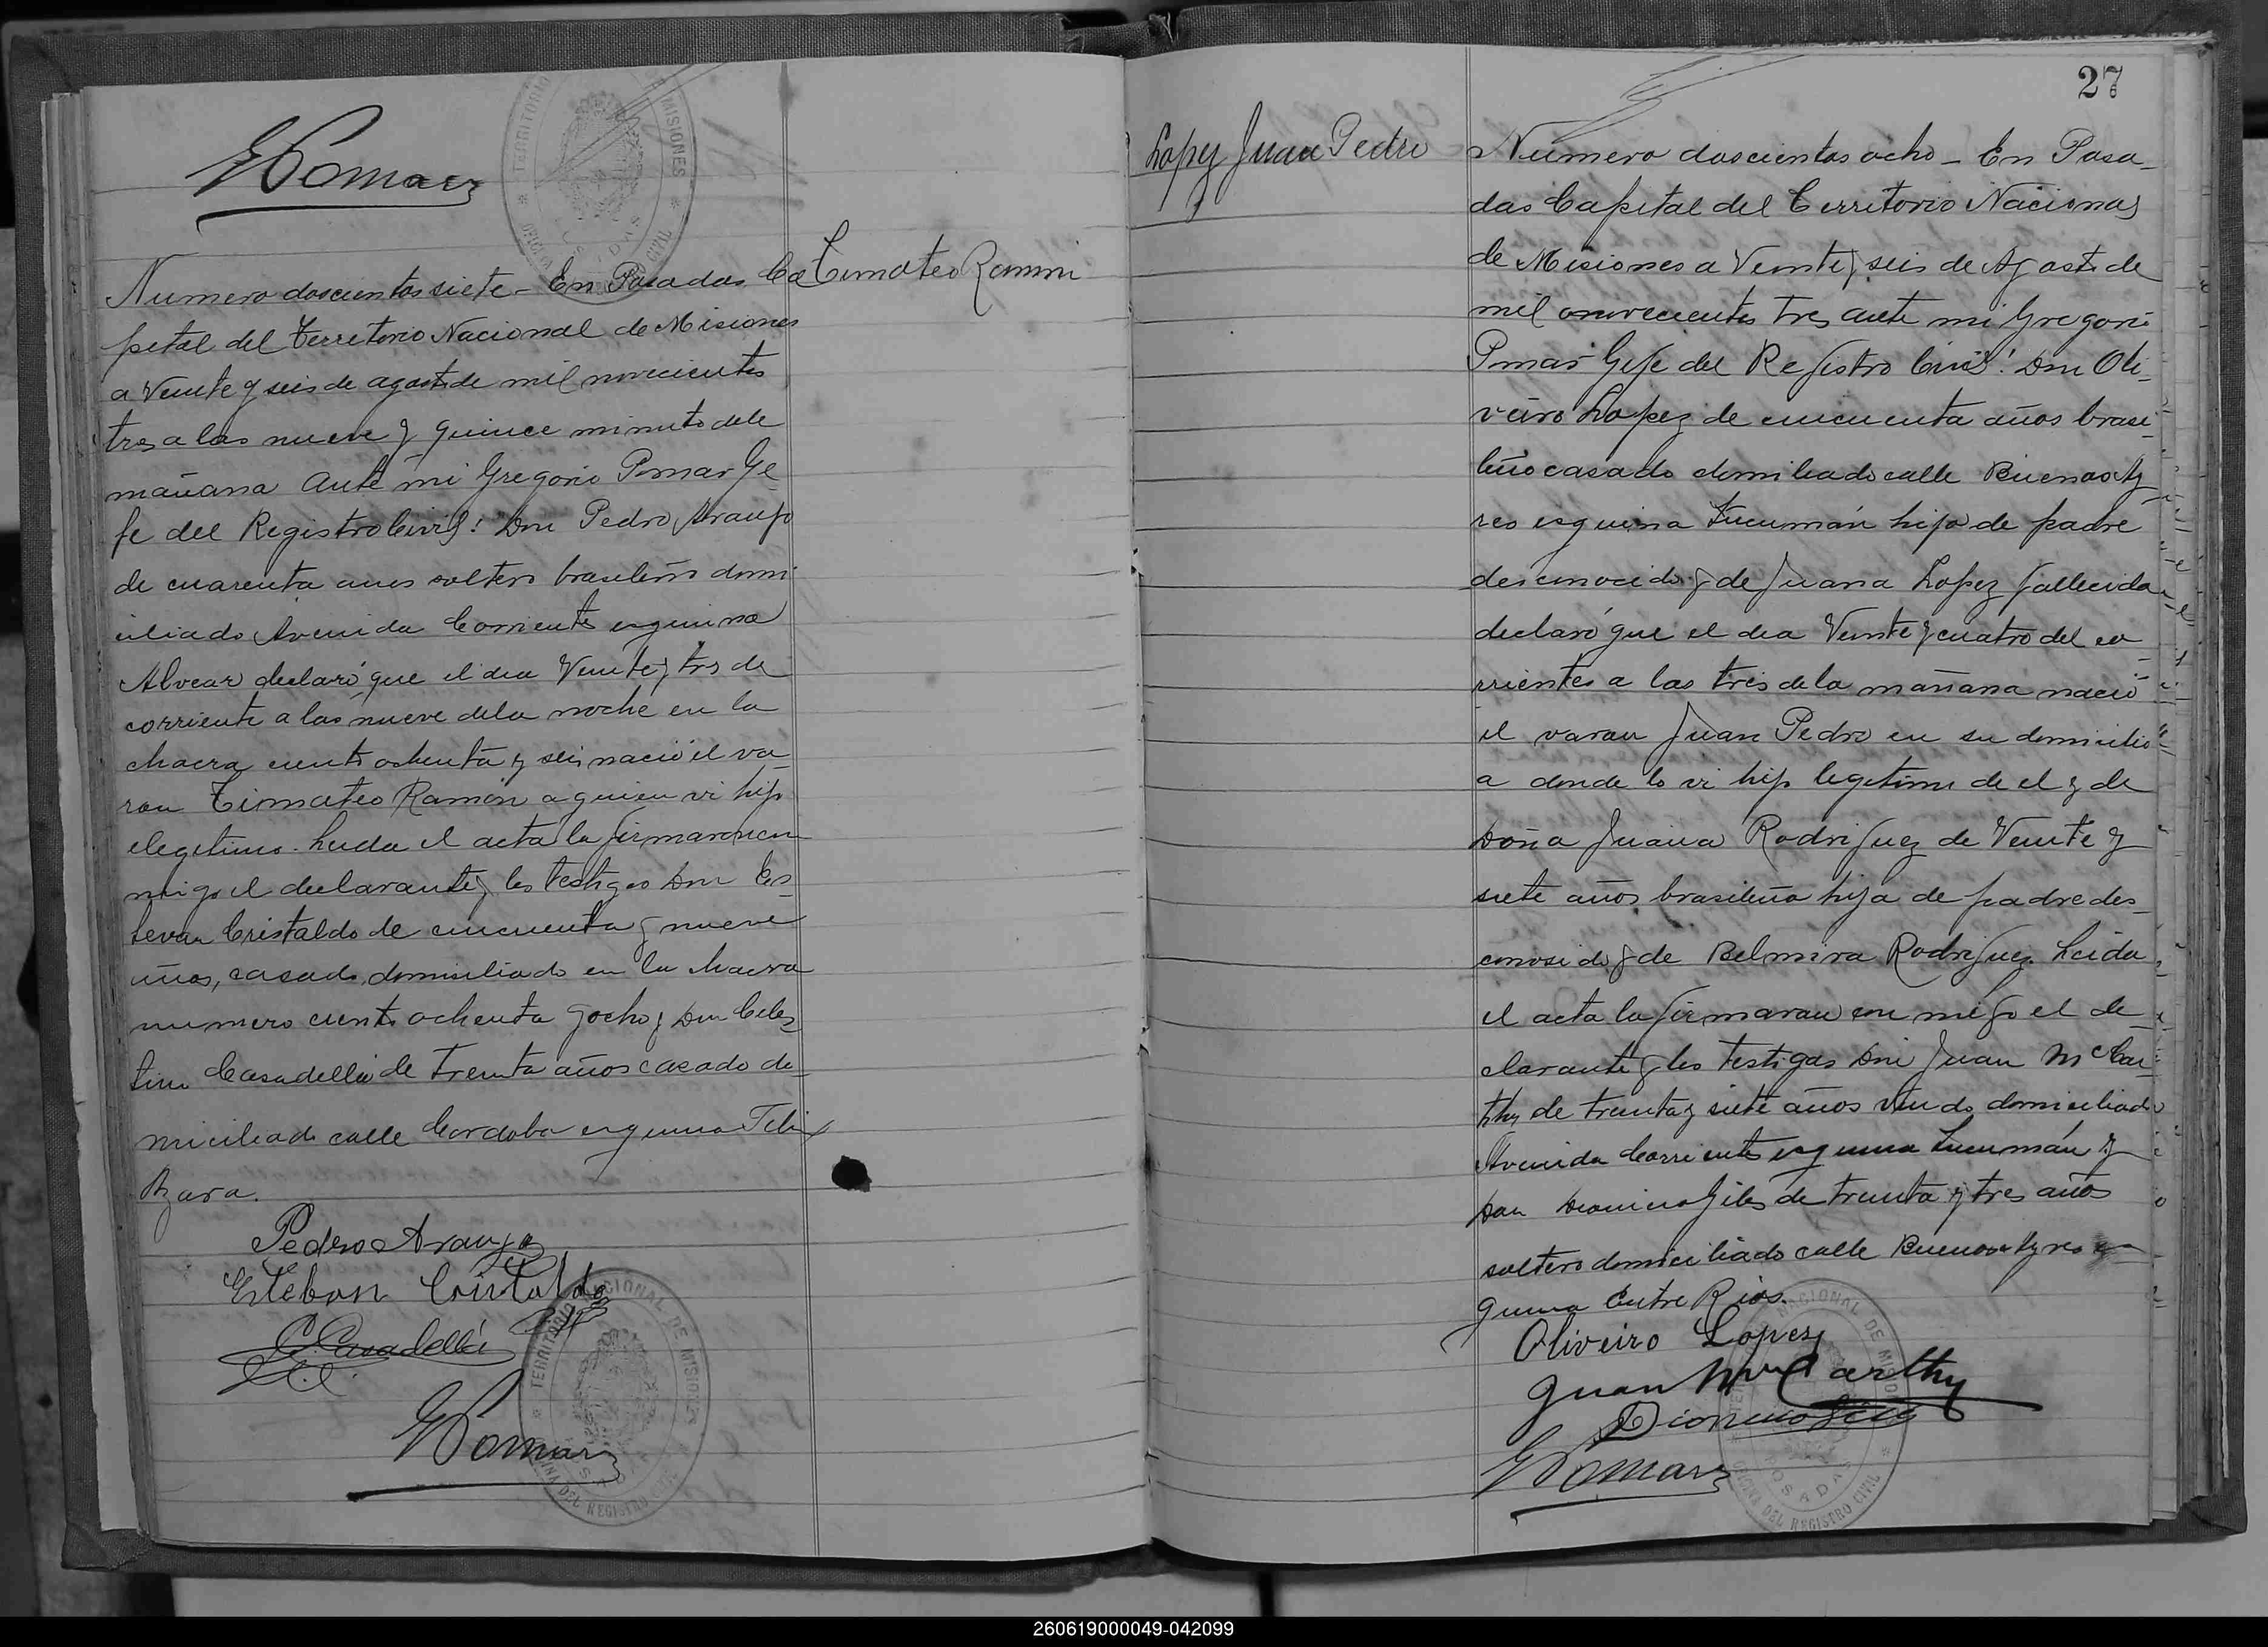 GPomar
TERRITORIO MISIONES
CIVIL
Numero doscientos siete - En Posadas Ca
pital del Territorio Nacional de Misiones
a Veinte y seis de agosto de mil novecientos
tres a las nueve y quince minutos dela
mañana ante mi Gregorio Pomar Ge
fe del Registro Civil: Don Pedro Araujo
de cuarenta anos soltero brasileño domi
ciliado Avenida Corrientes esquina
Alvear declaró que el dia Veinte y tres de
corriente a las nueve dela noche en la
chacra ciento ochenta y seis nació el va
ron Timoteo Ramón a quien vi hijo
elegitimo. Leida el acta la firmaron con
migo el declarante y los testigos Don Es
tevan Cristaldo de cincuenta y nueve
años, casado, domiciliado en la chacra
numero ciento ochenta y ocho y Don Celes
tino Casadellá de treinta años casado do
miciliado calle Cordoba esquina Felix
Azara.
Pedro Araujo
Esteban Cristaldo
C. Casadellá
GPomar
TERRITORIO NACIONAL DE MISIONES
OFICINA DEL REGISTRO
Timoteo Ramon
27
Lopez Juan Pedro
Numero doscientos ocho - En Posa
das Capital del Territorio Nacional
de Misiones a Veinte y seis de Agosto de
mil novecientos tres ante mi Gregorio
Pomar Gefe del Registro Civil: Don Oli
veiro Lopez de cincuenta años brasi
leño casado domiliado calle Buenos Ay
res esquina Tucumán hijo de padre
desconocido y de Juana Lopez fallecida
declaró que el dia Veinte y cuatro del co
rrientes a las tres de la mañana nació
el varon Juan Pedro en su domicilio
a donde lo vi hijo legitimo de el y de
Doña Juana Rodriguez de Veinte y
siete años brasileña hija de padre des
conosido y de Belmira Rodriguez. Leida
el acta la firmaron con migo el de
clarante y los testigos Don Juan Mc Car
thy de treinta y siete años viudo domiciliado
Avenida Corrientes esquina Tucumán y
Don Dionicio Giles de treinta y tres años
soltero domiciliado calle Buenos Ayres es
quina Entre Rios.
Oliveiro Lopez
Juan McCarthy
Dionicio Giles
GPomar
NACIONAL DE MISIONES
POSADAS
OFICINA DEL REGISTRO CIVIL
260619000049-042099